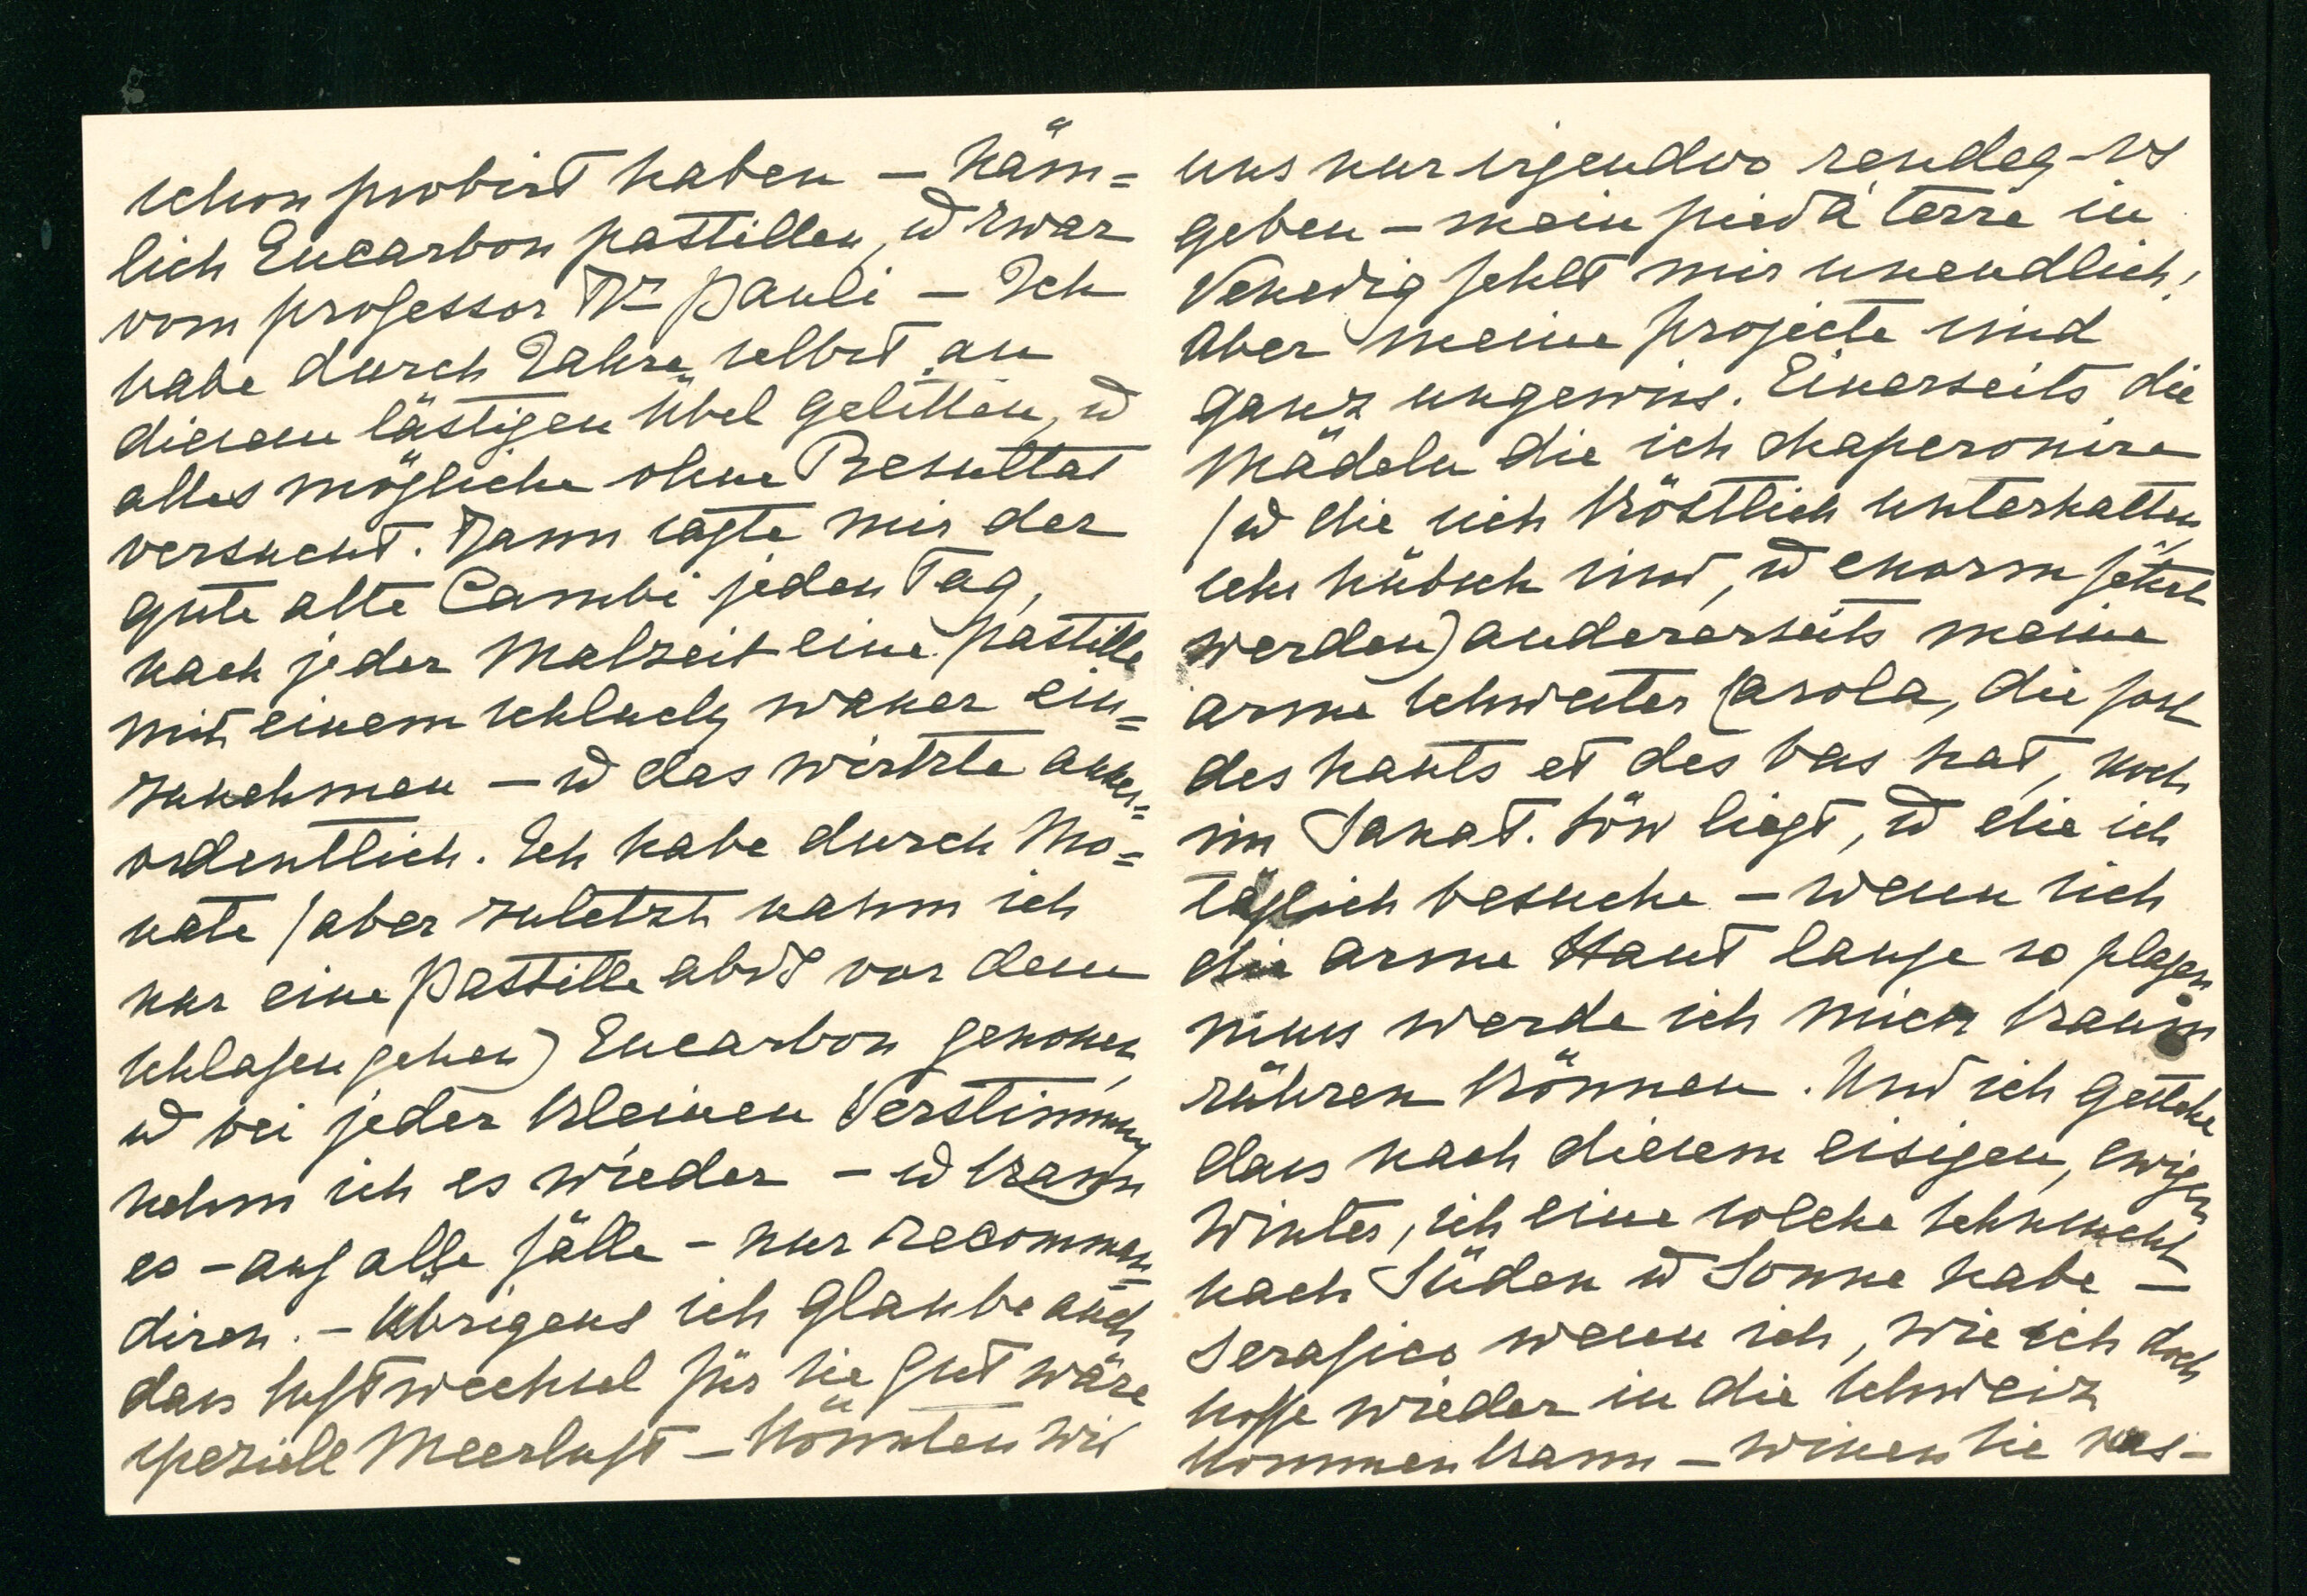 schon probirt haben – Näm=
lich Eucarbon pastillen, u zwar
vom professor Dr Pauli – Ich
habe durch Jahre selbst an
diesem lästigen Übel gelitten, u
alles mögliche ohne Resultat
versucht. Dann sagte mir der
gute alte Cambi jeden Tag,
nach jeder Malzeit eine pastille
mit einem schluck wasser ein=
zunehmen – u das wirkte ausser=
ordentlich. Ich habe durch Mo=
nate (aber zuletzt nahm ich
nur eine Pastille abds vor dem
schlafen gehen) Eucarbon genomen,
u bei jeder kleinen Verstimmung
nehm ich es wieder – u kann
es – auf alle fälle – nur recomman=
diren. – Übrigens ich glaube auch
dass luftwechsel für sie gut wäre
speziell Meerluft – Könnten wir
uns nur irgendwo rendez-vs
geben – mein pied à terre in
Venedig fehlt mir unendlich!
Aber meine projecte sind
ganz ungewiss. Einerseits die
Mädeln die ich chaperonire
(u die sich köstlich unterhalten,
sehr hübsch sind, u enorm fétirt
werden) andererseits meine
arme schwester Carola, die fort
des hauts et des bas hat, noch
im Sanat. Löw liegt, u die ich
täglich besuche – wenn sich
die arme Haut lange so plagen
muss werde ich mich kaum
rühren können. Und ich gestehe
dass nach diesem eisigen, ewigen
Winter, ich eine solche sehnsucht
nach Süden u Sonne habe –
Serafico wenn ich, wie ich doch
hoffe wieder in die schweiz
kommen kann – wissen sie was –